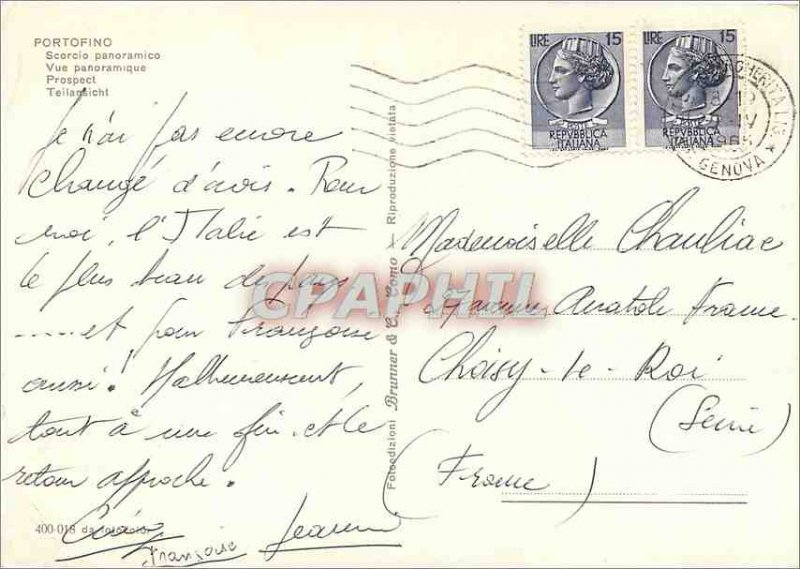 PORTOFINO
Scorcio panoramico
Vue panoramique
Prospect
Teilansicht
Je n'ai pas encore
changé d'avis. Pour
moi, l'Italie est
le plus beau des pays
......et pour Françoise
aussi! Malheureusement,
tout à une fin. et le
retour approche.
Françoise Jeanni
400-018 da fotocolor
Fotoedizioni Brunner & C. Como - Riproduzione vietata
LIRE 15
REPVBBLICA
ITALIANA
LIRE 15
REPVBBLICA
ITALIANA
MARGHERITA LIG.
GENOVA
Mademoiselle Chauliac
Avenue Anatole France.
Choisy-le-Roi
(Seine)
(France)
CPAPHIL